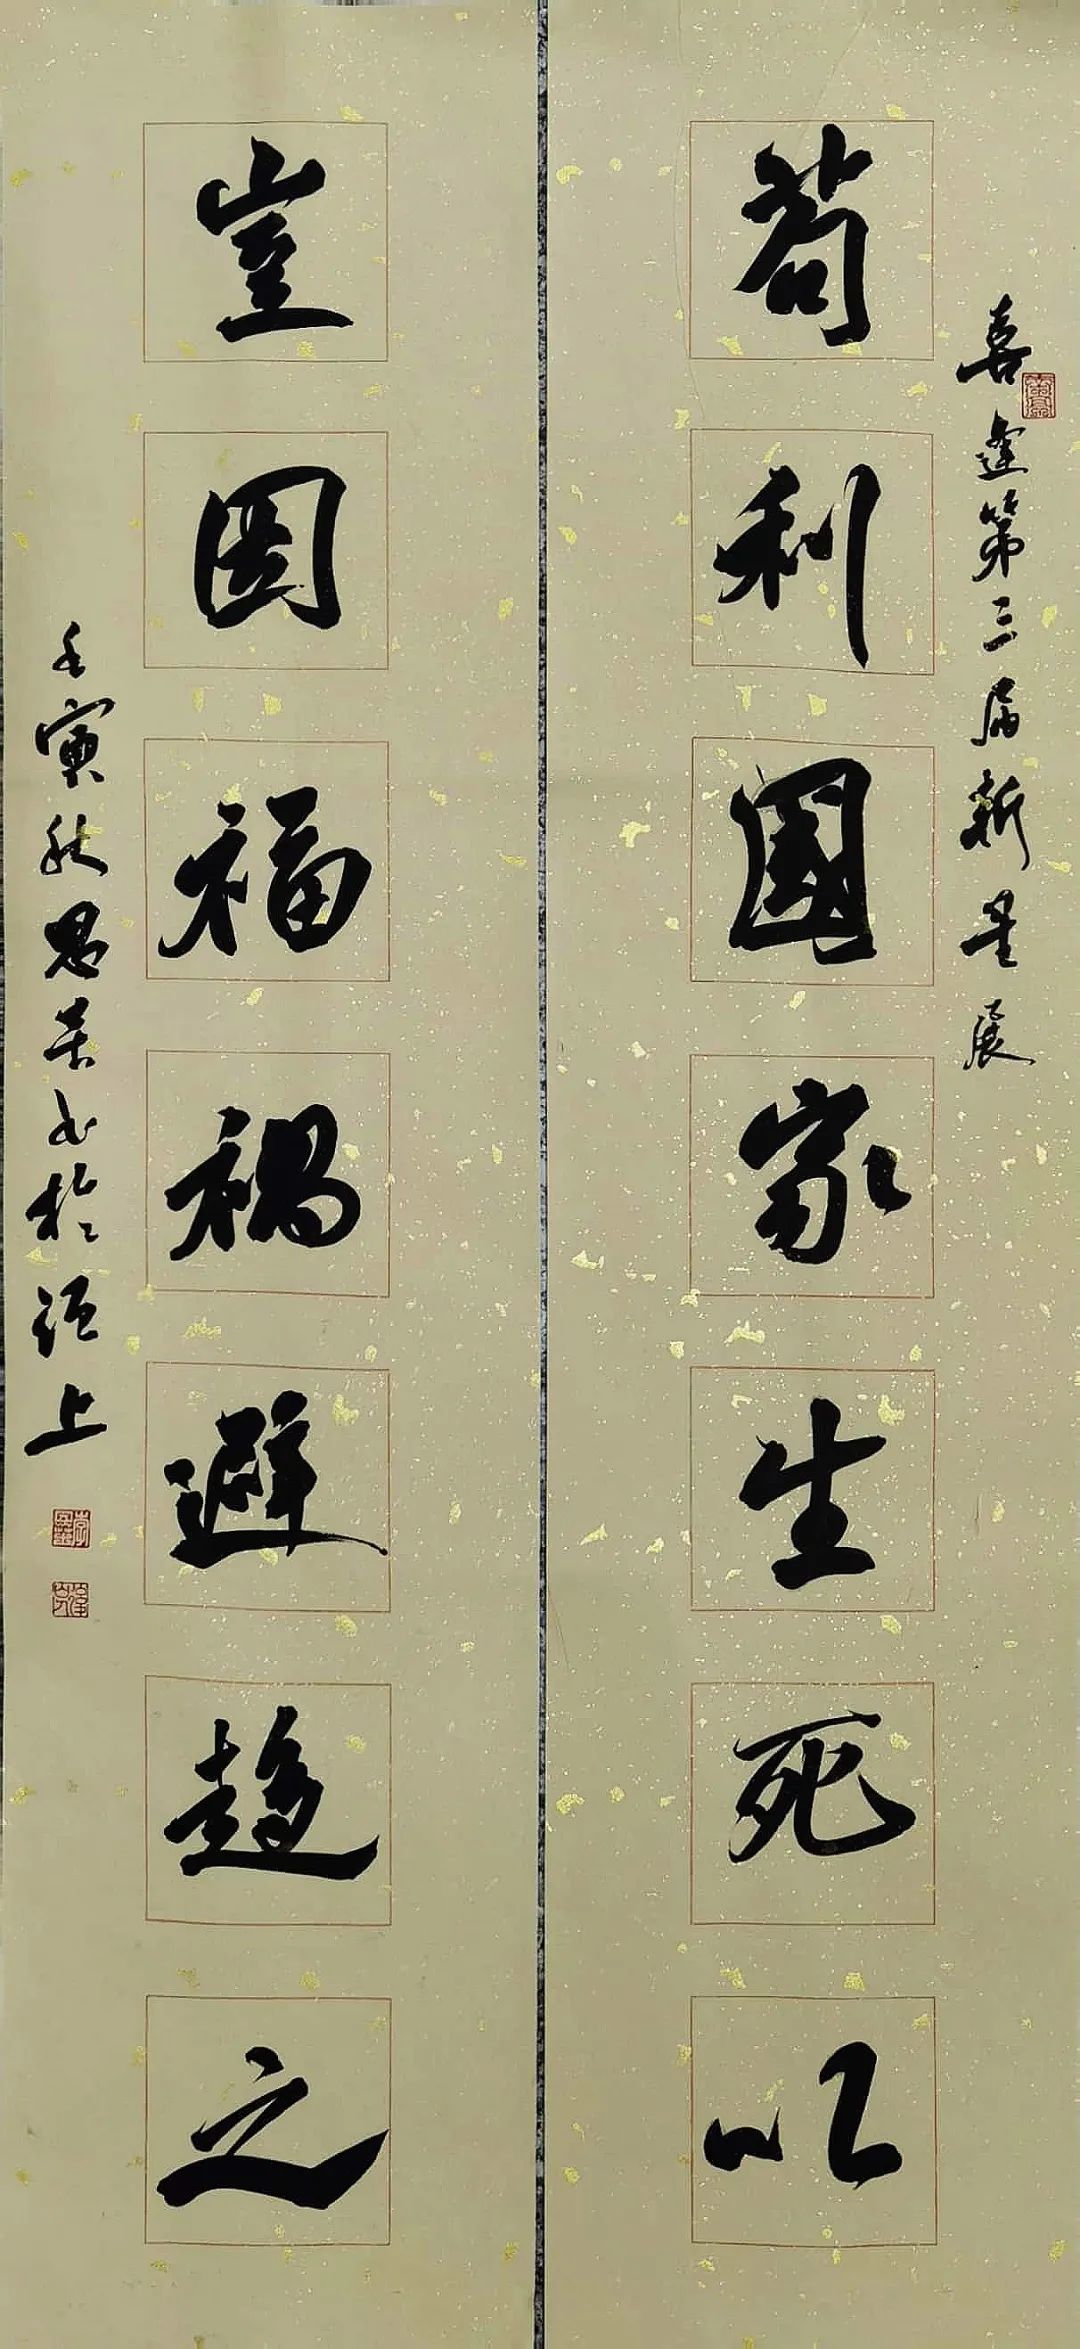 喜逢第三届新星展
苟利國家生死以
豈因福禍避趍之
壬寅秋思書於上